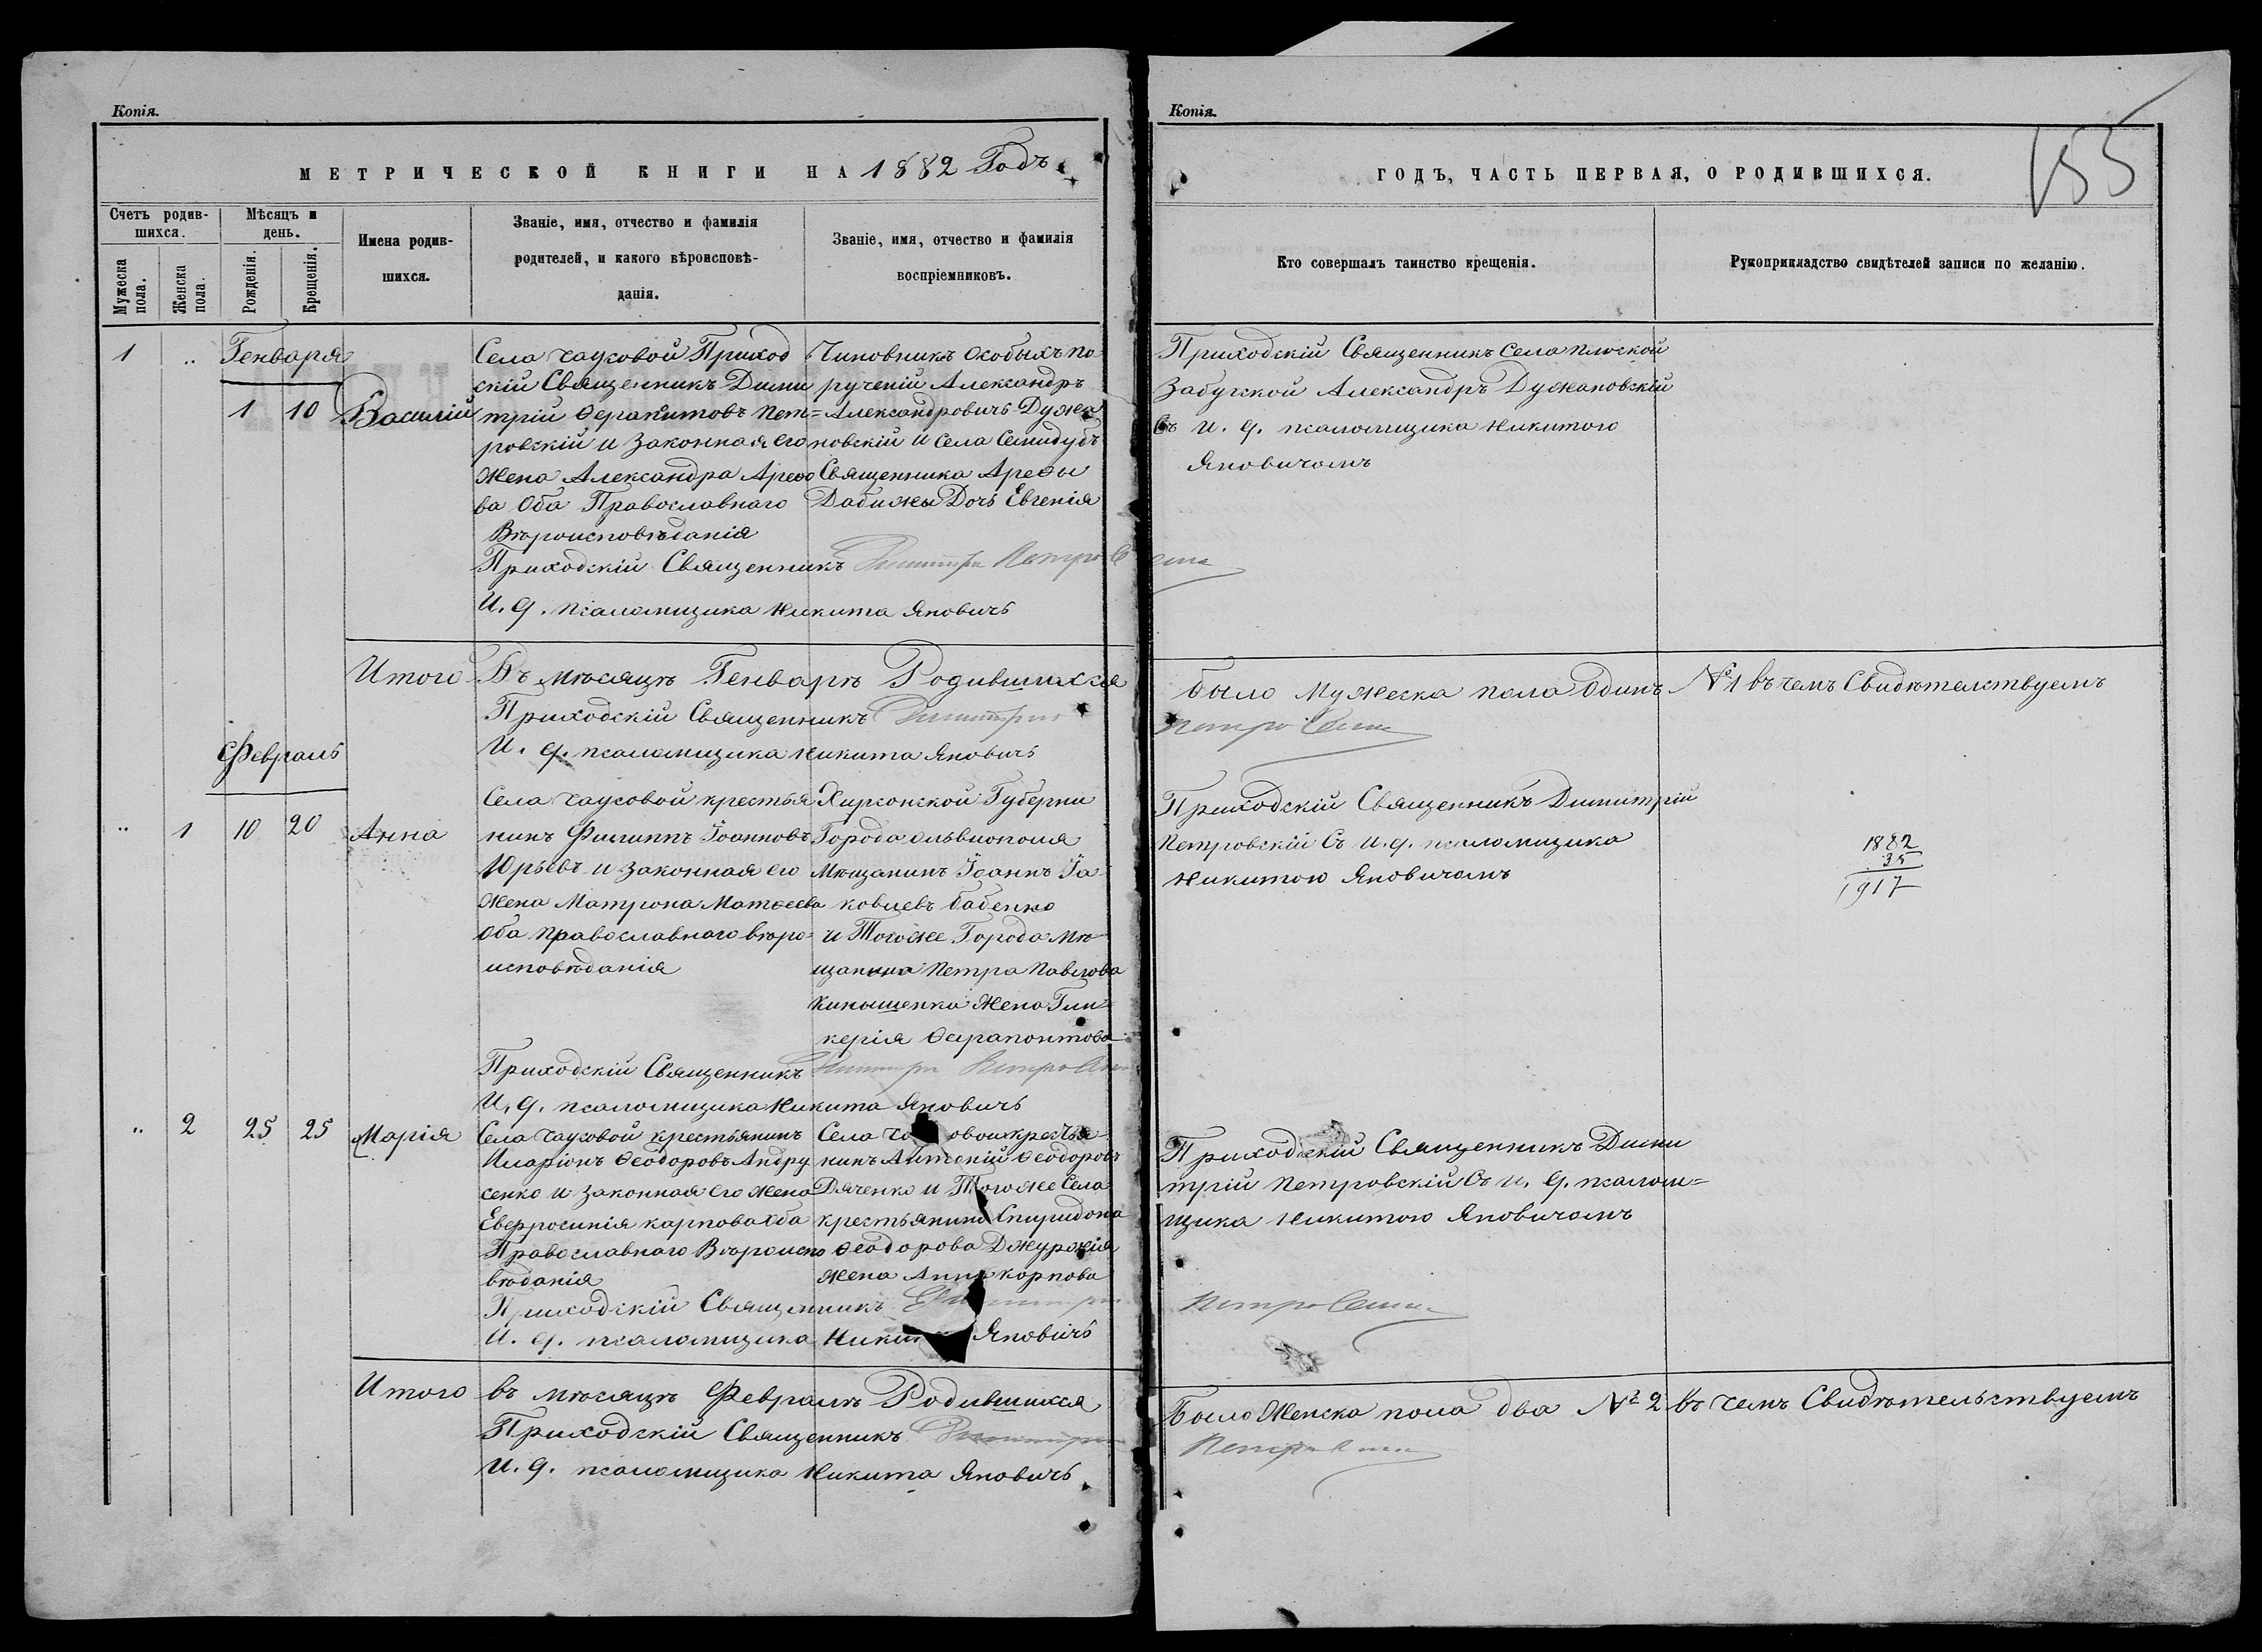 Копія.
МЕТРИЧЕСКОЙ КНИГИ НА 1882 Годъ
Счетъ родив-
шихся.
Мужеска
пола.
Женска
пола.
Мѣсяцъ и
день.
Рожденія.
Крещенія.
Имена родив-
шихся.
Званіе, имя, отчество и фамилія
родителей, и какого вѣроисповѣ-
данія.
Званіе, имя, отчество и фамилія
воспріемниковъ.
1 „ Генваря
1 10 Василій
Села Чаусовой Приход
скій Священникъ Дими
трій Ѳерапонтовъ Пет=
ровскій и Законная его
Жена Александра Ареѳо
ва Оба Православнаго
Вѣроисповѣданія
Чиновникъ Особыхъ по
рученій Александръ
Александровичъ Дужа
новскій и Села Семидубъ
Священника Ареѳы
Дабижы Дочь Евгенія
Приходскій Священникъ Димитрій Петровскій
И. д. псаломщика Никита Яновичъ
Итого Въ мѣсяцѣ Генварѣ Родившихся
Приходскій Священникъ Димитрій
И. д. псаломщика Никита Яновичъ
Февраль
„ 1 10 20 Анна
Села Чаусовой крестья
нинъ Филиппъ Іоанновъ
Юрьевъ и Законная его
Жена Матрона Матѳеева
Оба православнаго вѣро=
исповѣданія
Херсонской Губерни
Города Ольвиополя
Мѣщанинъ Іоаннъ Іа
ковлевъ Бабенко
и Тогоже Города Мѣ
щанина Петра Павлова
Кинышенка Жена Гли=
керія Ѳерапонтова
Приходскій Священникъ Димитрій Петровскій
И. д. псаломщика Никита Яновичъ
„ 2 25 25 Марія
Села Чаусовой крестьянинъ
Иларіонъ Ѳеодоровъ Андру
сенко и Законная его Жена
Евфросинія Карпова Оба
Православнаго Вѣроиспо
вѣданія
Села овой крестья
нинъ Ѳеодоровъ
Дяченко и Тогоже Села
крестьянина Спиридона
Ѳеодорова Джуржія
жена Анна Корпова
Приходскій Священникъ Димитрій
И. д. псаломщика Никита Яновичъ
Итого въ мѣсяцѣ Февралѣ Родившихся
Приходскій Священникъ Димитрій
И. д. псаломщика Никита Яновичъ
Копія.
155
ГОДЪ, ЧАСТЬ ПЕРВАЯ, О РОДИВШИХСЯ.
Кто совершалъ таинство крещенія.
Рукоприкладство свидѣтелей записи по желанію.
Приходскій Священникъ Села Плоской
Забугской Александръ Дужановскій
Съ И. д. псаломщика Никитою
Яновичомъ
было Мужеска пола Одинъ № 1 въ чемъ Свидѣтелствуемъ
Петровскій
Приходскій Священникъ Димитрій
Петровскій Съ И. д. псаломщика
Никитою Яновичомъ
1882
35
1917
Приходскій Священникъ Дими
трій Петровскій Съ И. д. псалом=
щика Никитою Яновичомъ
Петровскій
Было Женска пола два № 2 въ чемъ Свидѣтельствуемъ
Петровскій